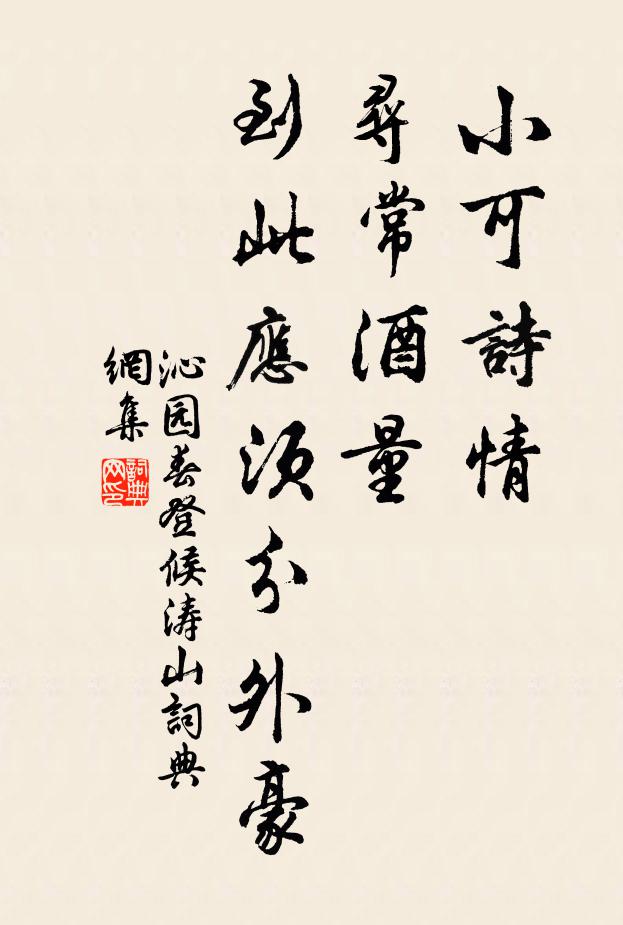 小可詩情
尋常酒量
到此應須分外豪
沁园春登候涛山詞典
網集
詞典
网印